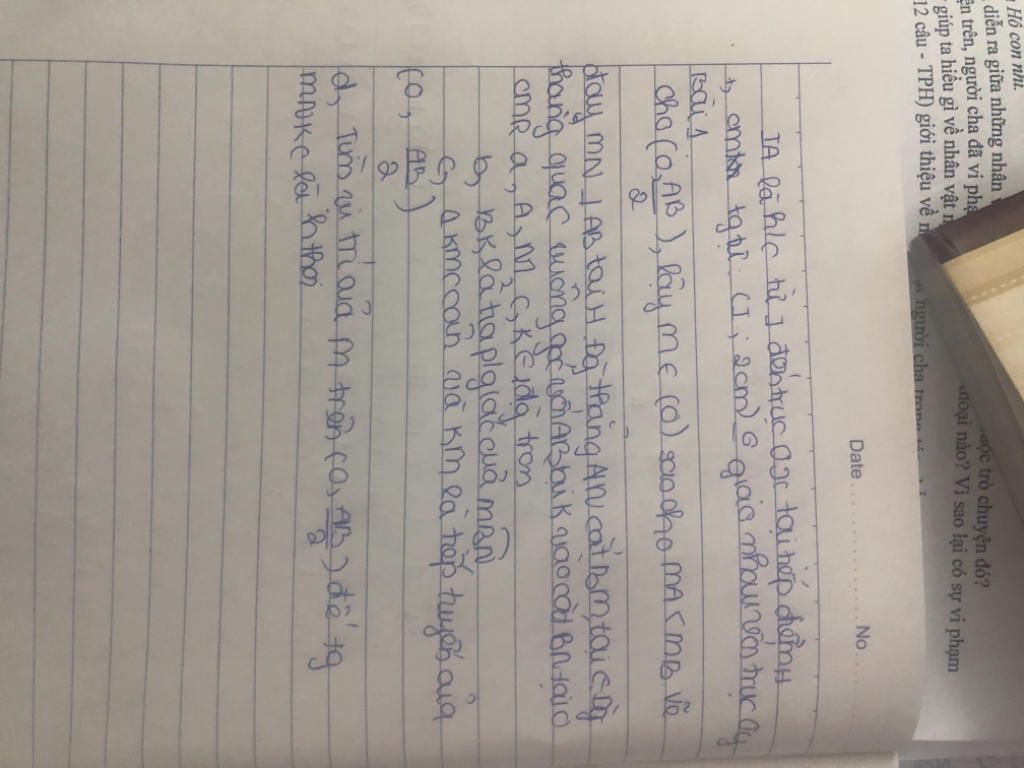 Hồ con nhi.
diễn ra giữa những nhân
ện trên, người cha đã vi phạ
giúp ta hiểu gì về nhân vật n
12 câu - TPH) giới thiệu về n
người cha trong
ược trò chuyện đó?
thoại nào? Vì sao lại có sự vi phạm
Date No
IA là h/c từ I đến trục Ox tại tiếp điểm H
b, cmtta tgtt. (I; 2cm) giao nhau với trục Oy
Bài 1
cho (O, AB/2), lấy m ∈ (O) sao cho mA < mB vẽ
dây mN ⊥ AB tại H đg thẳng AN cắt Bm tại C đg
thẳng qua C vuông góc với AB tại K và cắt BN tại D
CMR a, A, M, C, K ∈ 1 đg tròn
b, BK là tia p/giác của mBN
c, Δ KMC cân và KM là tiếp tuyến của
(O, AB/2)
d, Tìm vị trí của m trên (O, AB/2) để tg
MNKC là h thoi